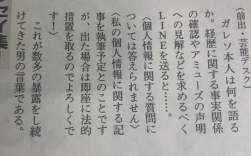 (前・芸能デスク)
ガレソ本人は何を語る
か。経歴に関する事実関係
の確認やアミューズの声明
への見解などを求めるべく
LINEを送ると……。
〈個人情報に関する質問に
ついては答えられません〉
〈私の個人情報に関する記
事を執筆予定とのことです
が、出た場合は即座に法的
措置を取るのでよろしくで
す〉
これが数多の暴露をし続
けてきた男の言葉である。